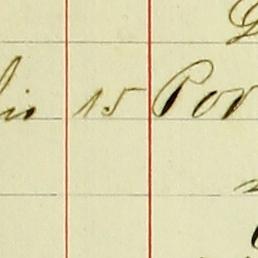 lio 15 Por